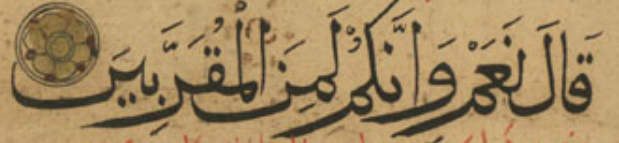 قَالَ نَعَمْ وَاِنَّكُمْ لَمِنَ الْمُقَرَّبِينَ